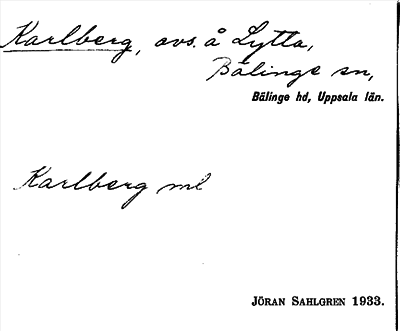 Karlberg, avs. å Lytta,
Bälinge sn,
Bälinge hd, Uppsala län.
Karlberg ml
JÖRAN SAHLGREN 1933.